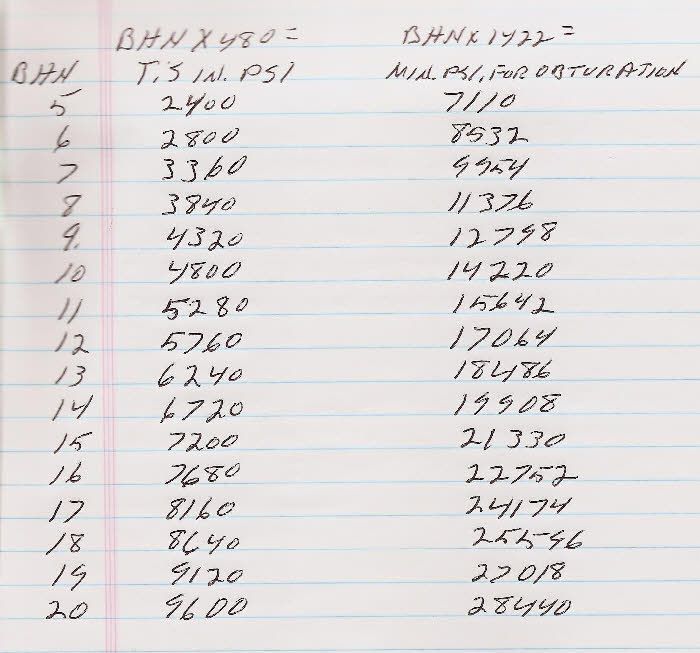 BHN X 480 = BHN X 1422 =
BHN T.S IN. PSI MIN. PSI, FOR OBTURATION
5 2400 7110
6 2800 8532
7 3360 9954
8 3840 11376
9. 4320 12798
10 4800 14220
11 5280 15642
12 5760 17064
13 6240 18486
14 6720 19908
15 7200 21330
16 7680 22752
17 8160 24174
18 8640 25596
19 9120 27018
20 9600 28440